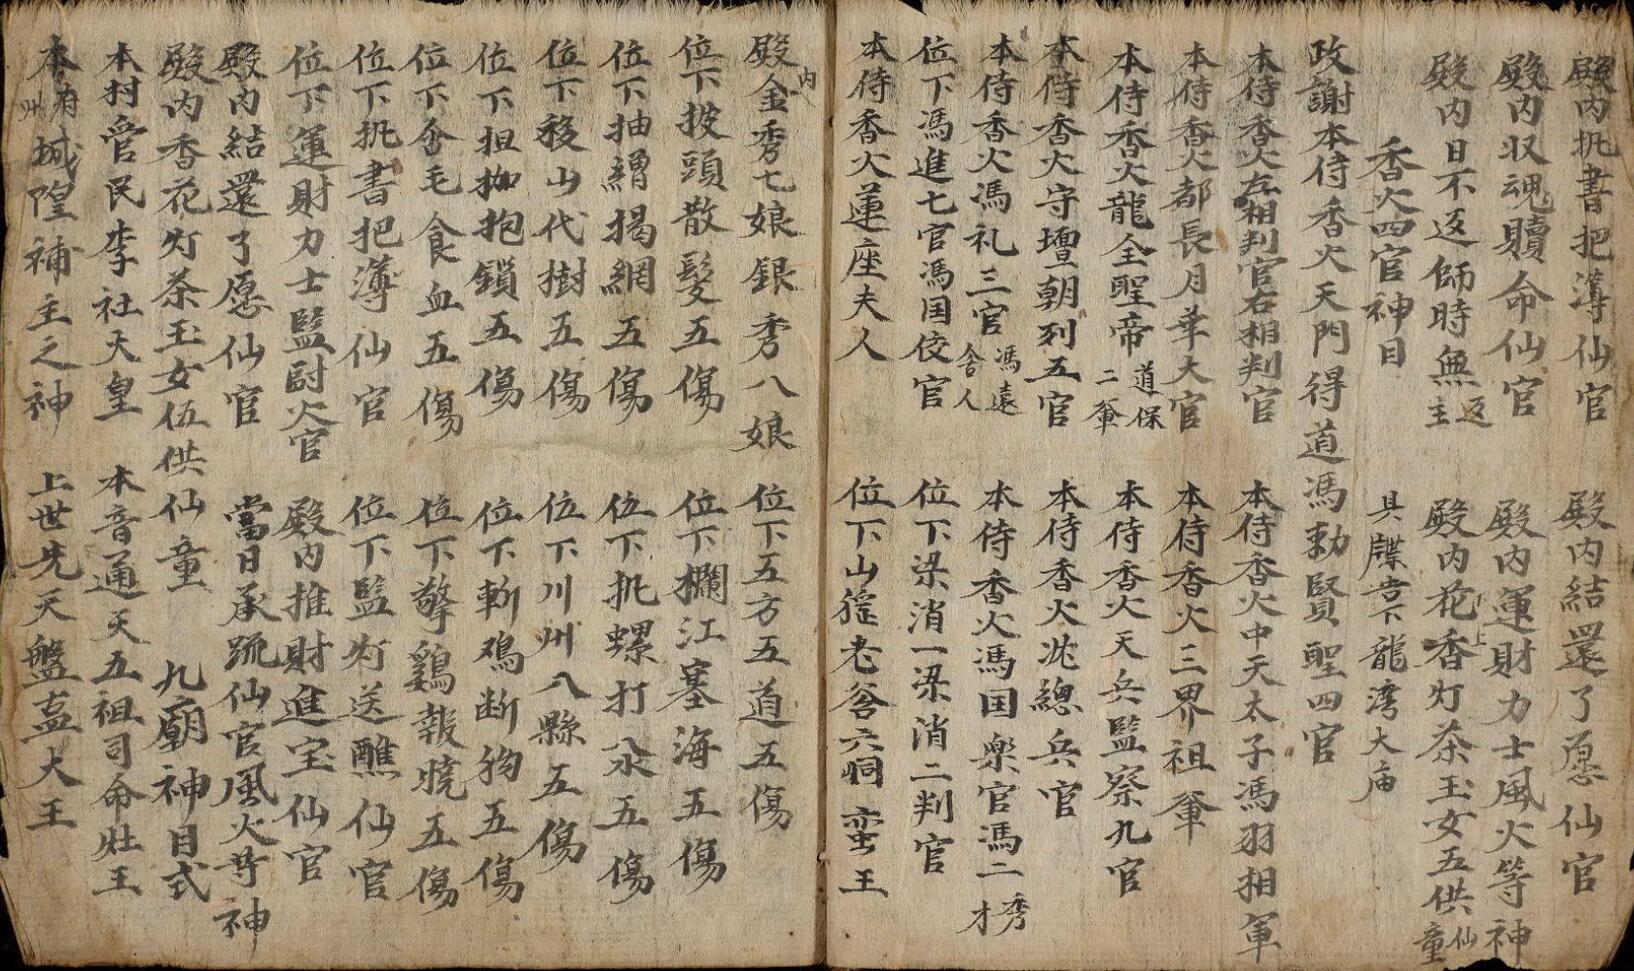 殿内扎書把薄仙官　殿内結還了愿仙官
殿内収魂贖命仙官　殿内運財力士風火等神
殿内日不返師時無返主　殿内花香灯茶玉女五供仙童
香火四官神目　具牒堂下龍湾大庙
政謝本侍香火天門得道馮勅賢聖四官
本侍香火左相判官右相判官　本侍香火中天太子馮羽相軍
本侍香火都長月華大官　本侍香火三界祖軍
本侍香火龍全聖帝道保二軍　本侍香火天兵監察九官
本侍香火守壇朝列五官　本侍香火总總兵官
本侍香火馮礼三官馮遠舍人　本侍香火馮国樂官馮二秀才
位下馮進七官馮国佼官　位下梁消一梁消二判官
本侍香火蓮座夫人　位下山猺老爸六峒蛮王
殿内金秀七娘銀秀八娘　位下五方五道五傷
位下披頭散髮五傷　位下欄江塞海五傷
位下抽繒揭網五傷　位下扎螺打氶五傷
位下移山代樹五傷　位下川州八縣五傷
位下担枷抱鎖五傷　位下斬鴉断狗五傷
位下含毛食血五傷　位下擎鷄報曉五傷
位下扎書把薄仙官　位下監灯送醮仙官
位下運財力士監尉火官　殿内推財進宝仙官
殿内結還了愿仙官　當日承疏仙官風火等神
殿内香花灯茶玉女伍供仙童　九廟神目式
本村管民李社天皇　本音通天五祖司命灶王
本府州城隍補主之神　上世先天盤古大王